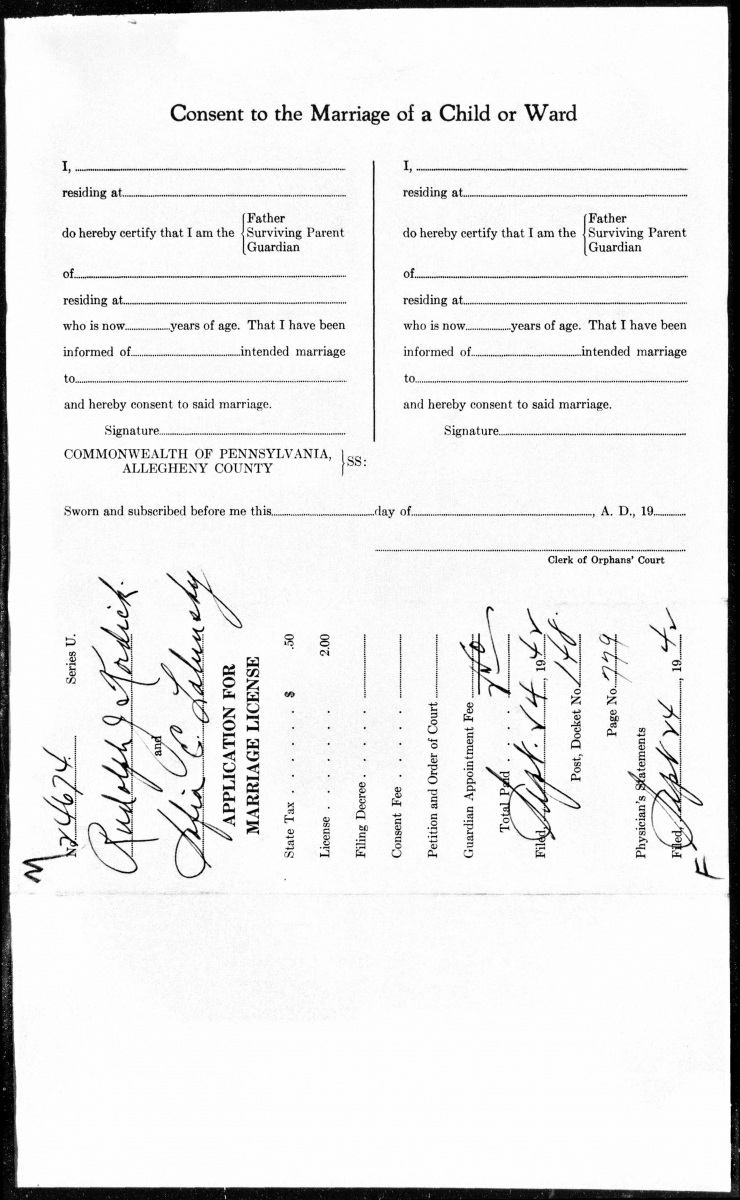 Consent to the Marriage of a Child or Ward
I,
residing at
do hereby certify that I am the { Father
Surviving Parent
Guardian
of
residing at
who is now years of age. That I have been
informed of intended marriage
to
and hereby consent to said marriage.
Signature
I,
residing at
do hereby certify that I am the { Father
Surviving Parent
Guardian
of
residing at
who is now years of age. That I have been
informed of intended marriage
to
and hereby consent to said marriage.
Signature
COMMONWEALTH OF PENNSYLVANIA,
ALLEGHENY COUNTY } SS:
Sworn and subscribed before me this day of , A. D., 19
Clerk of Orphans' Court
M
No. 24674 Series U.
Rudolph J
and
C.
APPLICATION FOR
MARRIAGE LICENSE
State Tax . . . . . . . $ .50
License . . . . . . . 2.00
Filing Decree . . . . .
Consent Fee . . . . .
Petition and Order of Court
Guardian Appointment Fee
Total Paid . . . . .
Filed, Sept. 24, 1942
Post, Docket No. 148.
Page No. 779
Physician's Statements
Filed, Sept 24, 1942
F